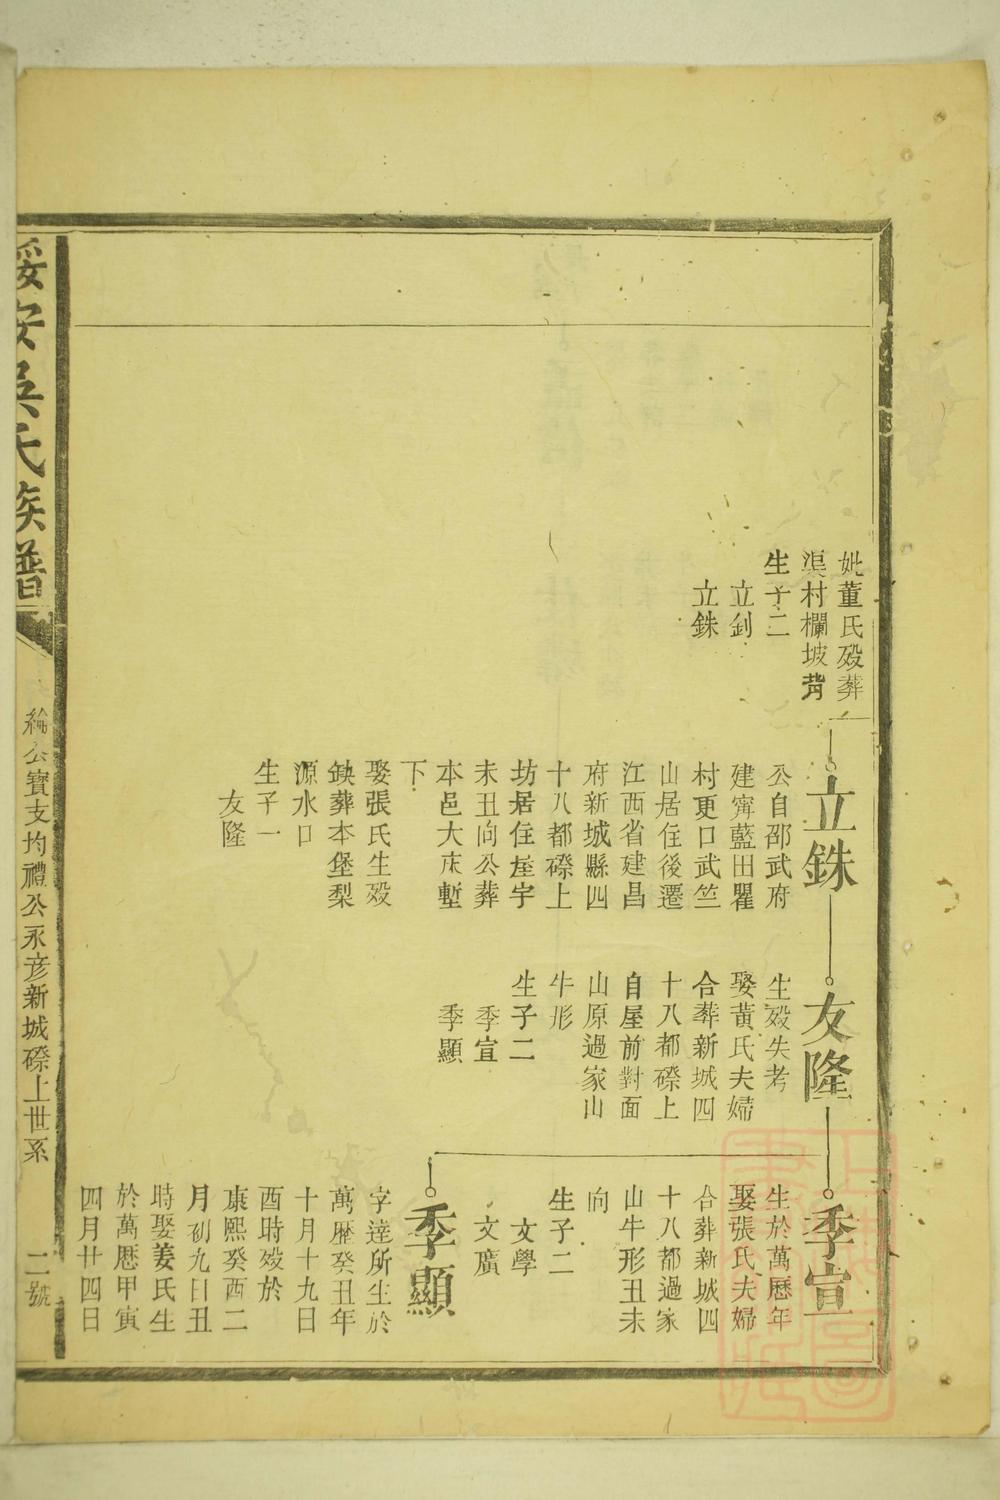 妣董氏歿葬
渠村欄坡背
生子二
立釗
立銖
立銖
公自邵武府
建寗藍田瞿
村更口武竺
山居住後遷
江西省建昌
府新城縣四
十八都磜上
坊居住屋宇
未丑向公葬
本邑大㡳塹
下
娶張氏生歿
缺葬本堡梨
源水口
生子一
友隆
友隆
生歿失考
娶黃氏夫婦
合葬新城四
十八都磜上
自屋前對面
山原過家山
牛形
生子二
季宣
季顯
季宣
生於萬曆年
娶張氏夫婦
合葬新城四
十八都過家
山牛形丑未
向
生子二
文學
文廣
季顯
字達所生於
萬曆癸丑年
十月十九日
酉時歿於
康熙癸酉二
月初九日丑
時娶姜氏生
於萬曆甲寅
四月廿四日
綏安吳氏族譜
綸公寶支均禮公永彥新城磜上世系
二號